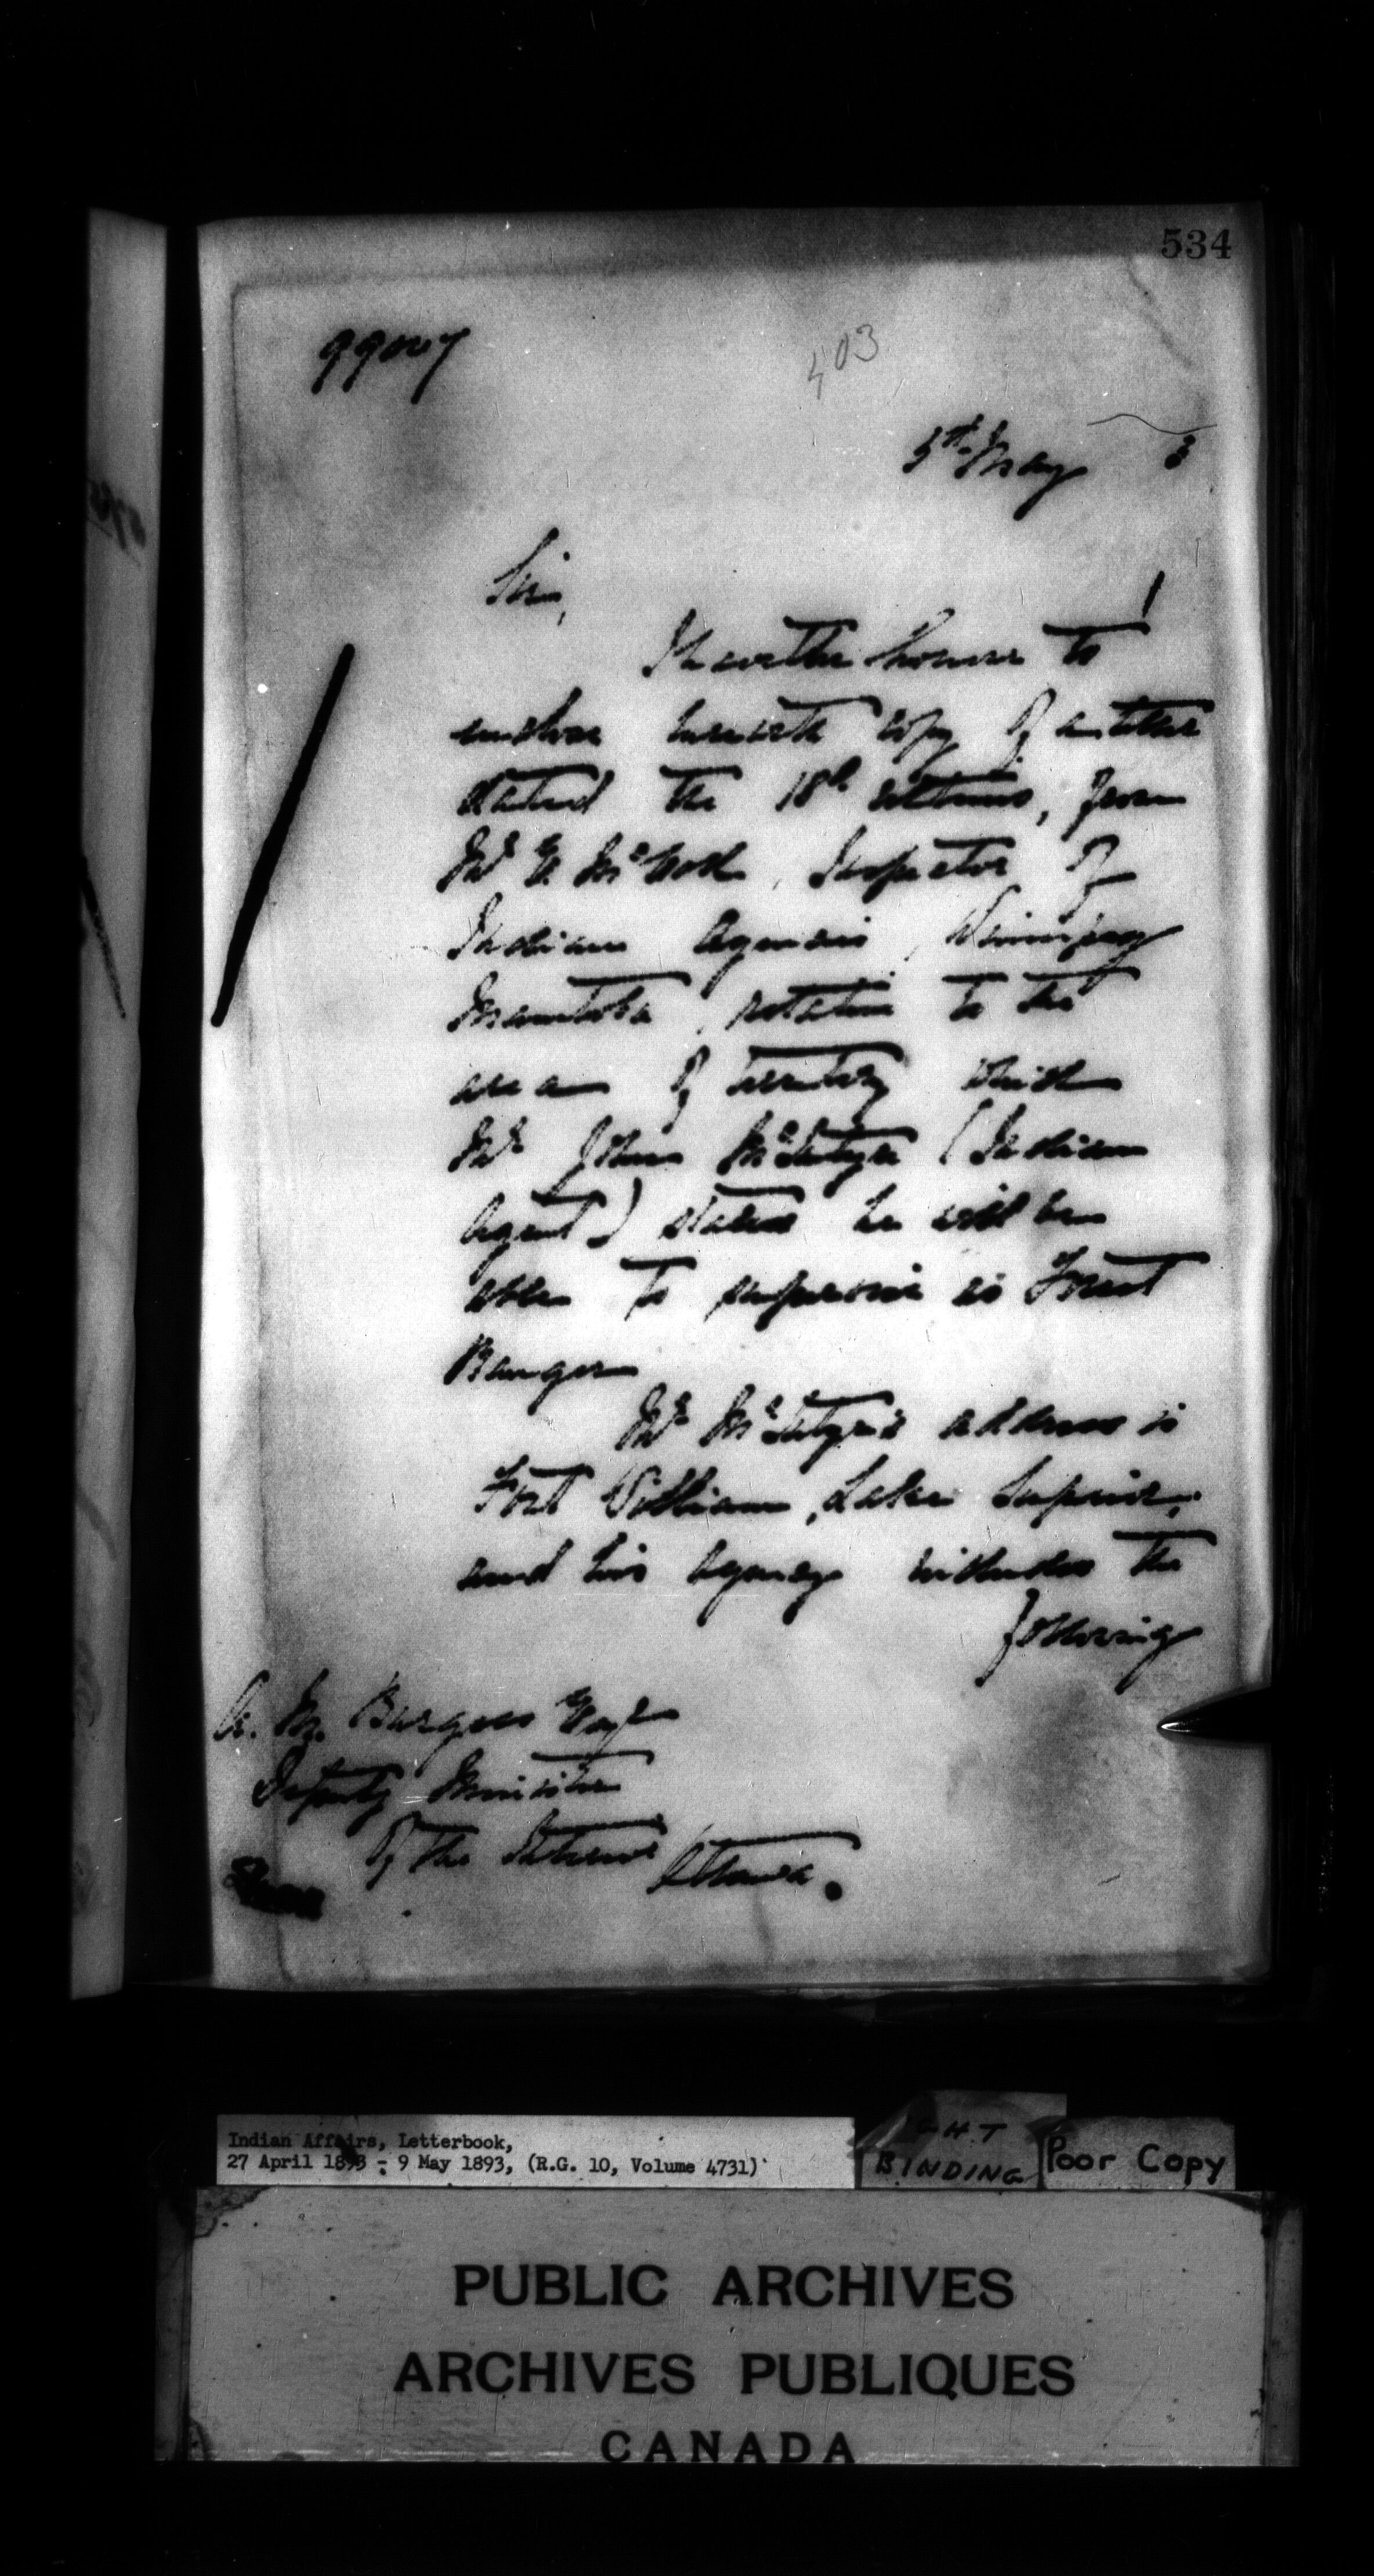 534
99027
403
5th May 3
Sir,
I have the honour to
enclose herewith copy of a letter
dated the 18th ultimo, from
Mr E. McColl, Inspector of
Indian Agencies, Winnipeg
Manitoba, relative to the
area of territory which
Mr John McIntyre (Indian
Agent) states he will be
able to supervise as Forest
Ranger
Mr McIntyre's address is
Fort William, Lake Superior,
and his Agency includes the
following
A. M. Burgess Esqr
Deputy Minister
Of the Interior Ottawa.
Indian Affairs, Letterbook,
27 April 1893 - 9 May 1893, (R.G. 10, Volume 4731)
BINDING
Poor Copy
PUBLIC ARCHIVES
ARCHIVES PUBLIQUES
CANADA